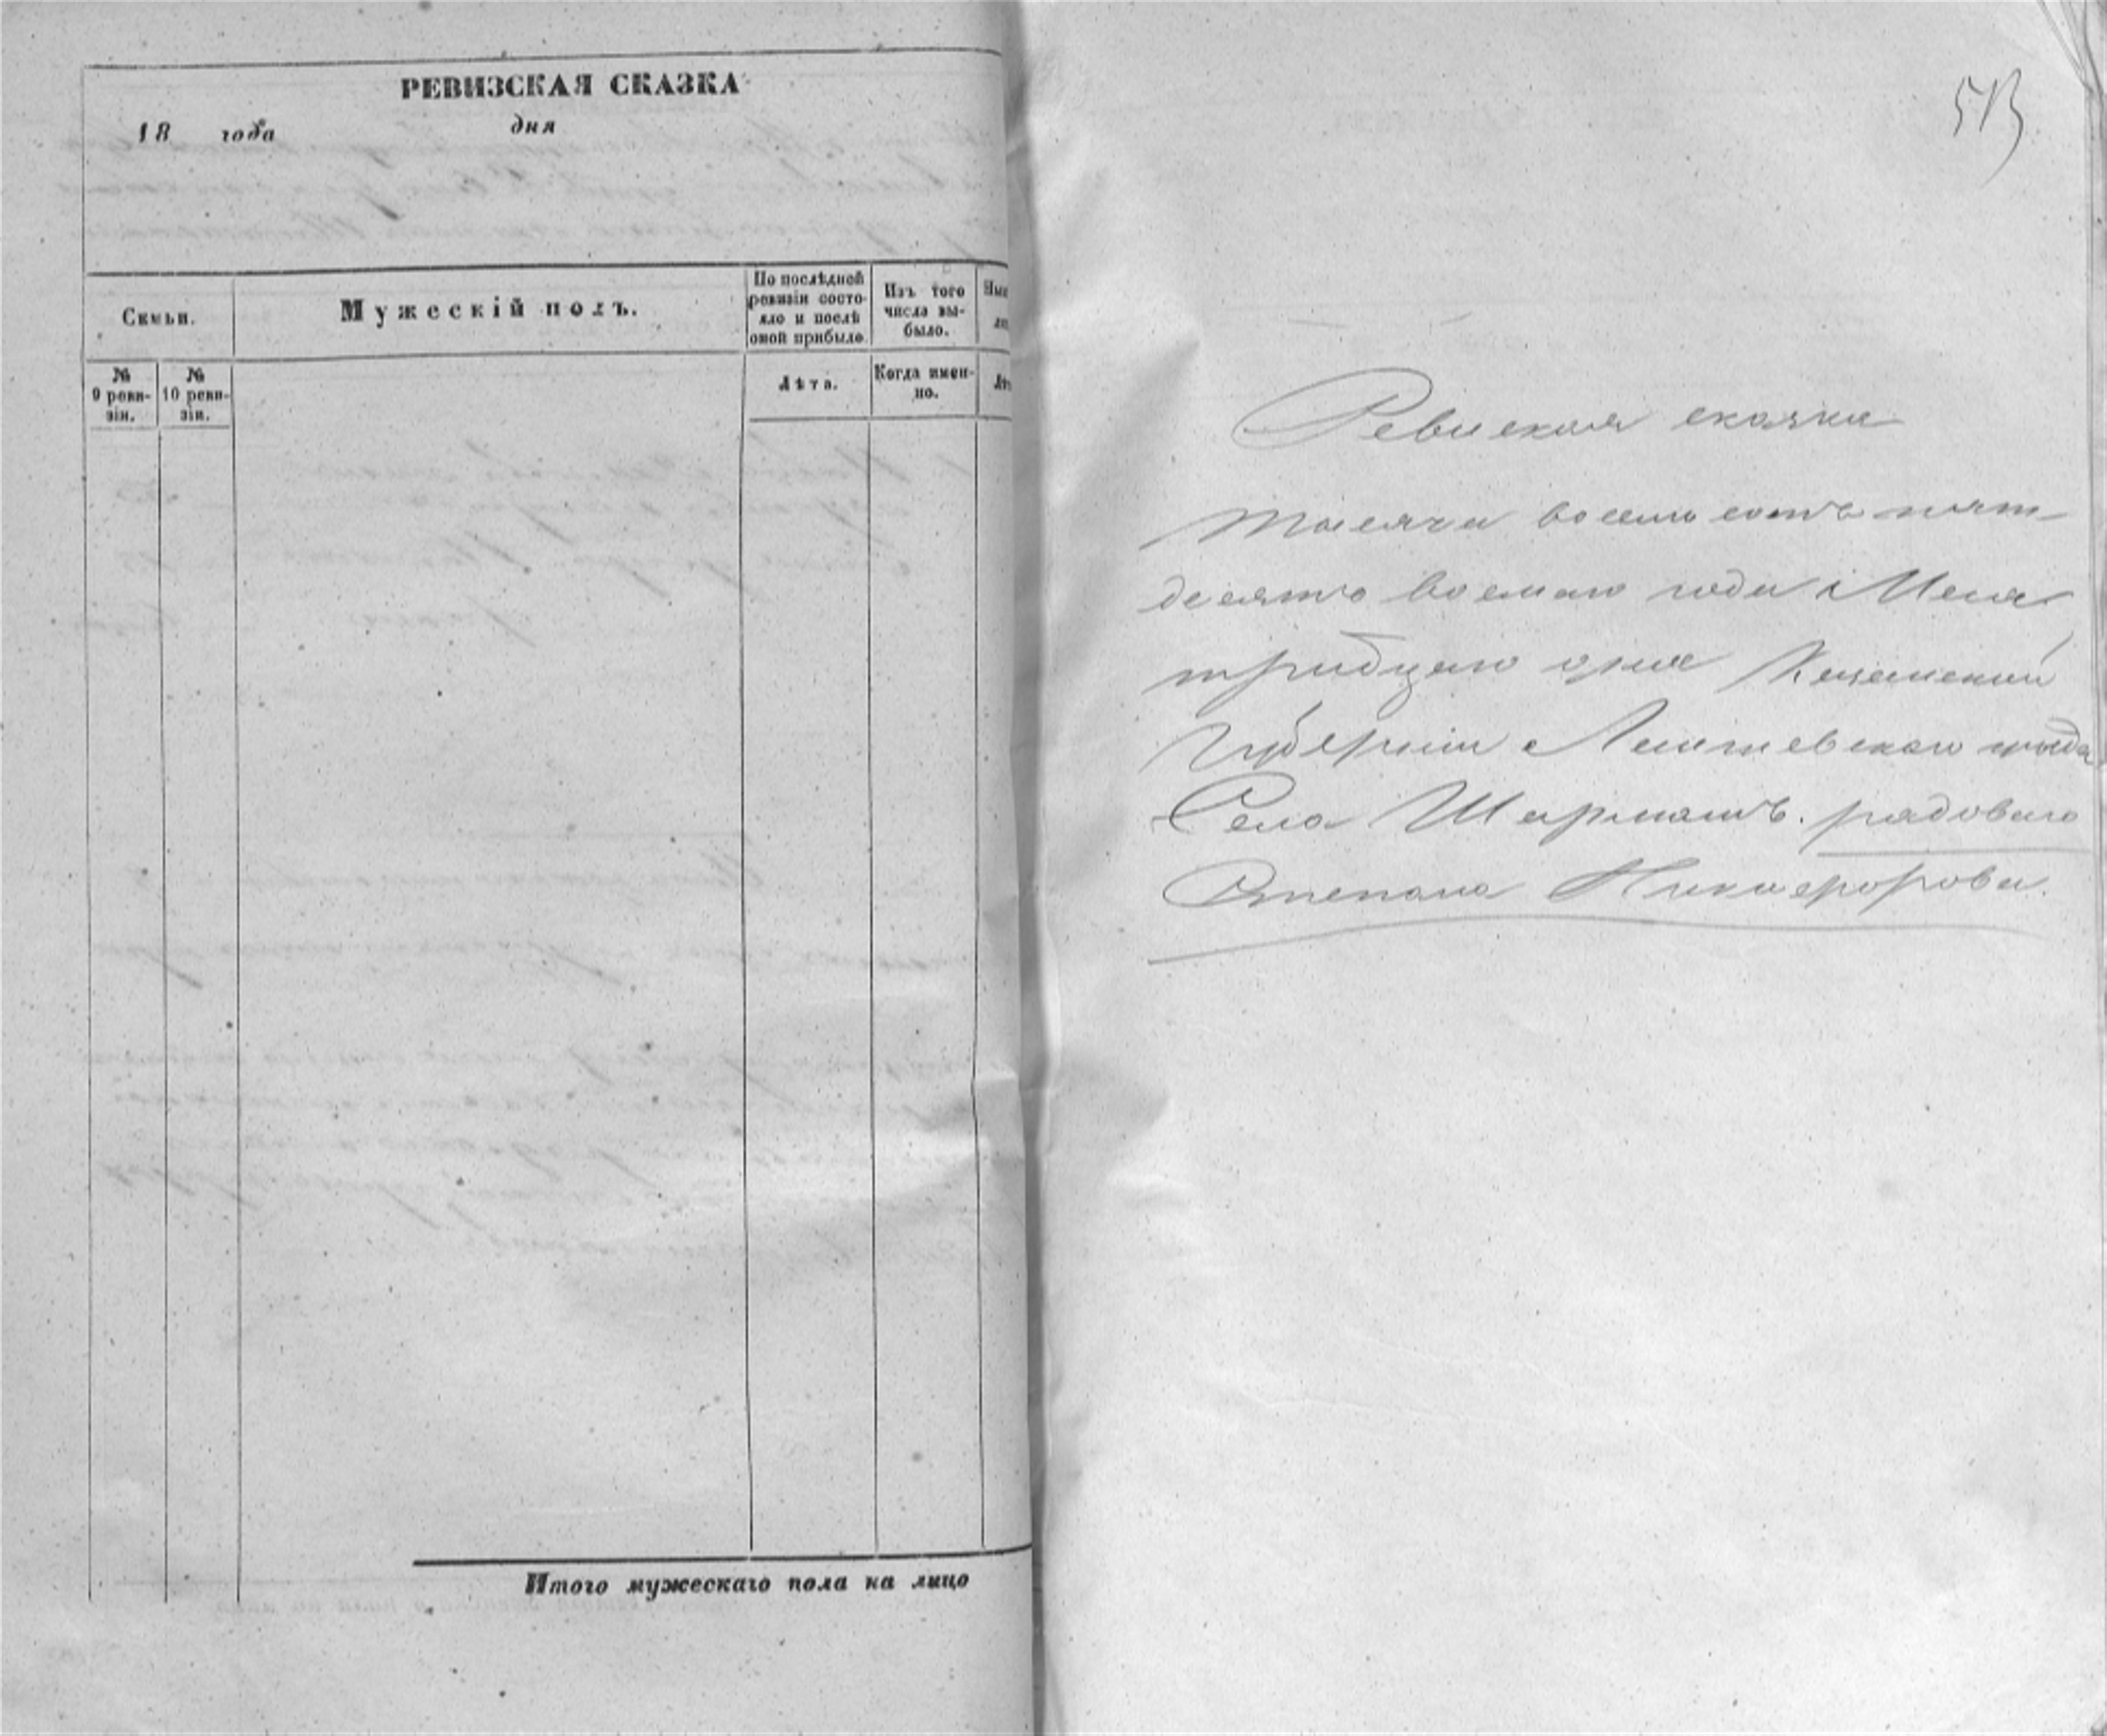 РЕВИЗСКАЯ СКАЗКА
18 года дня
Семьи.
Мужескій полъ.
По послѣдней
ревизіи состо-
яло и послѣ
оной прибыло.
Изъ того
числа вы-
было.
№
9 реви-
зіи.
№
10 реви-
зіи.
Лѣта.
Когда имен-
но.
Итого мужескаго пола на лицо
513
Ревиская сказка
тысяча восемь сотъ пят-
десятъ восмаго года Мая
тридцаго дня Казанской
Губерніи Лаишевскаго уѣзда
Села Шармашъ. рядоваго
Степана Никифорова.